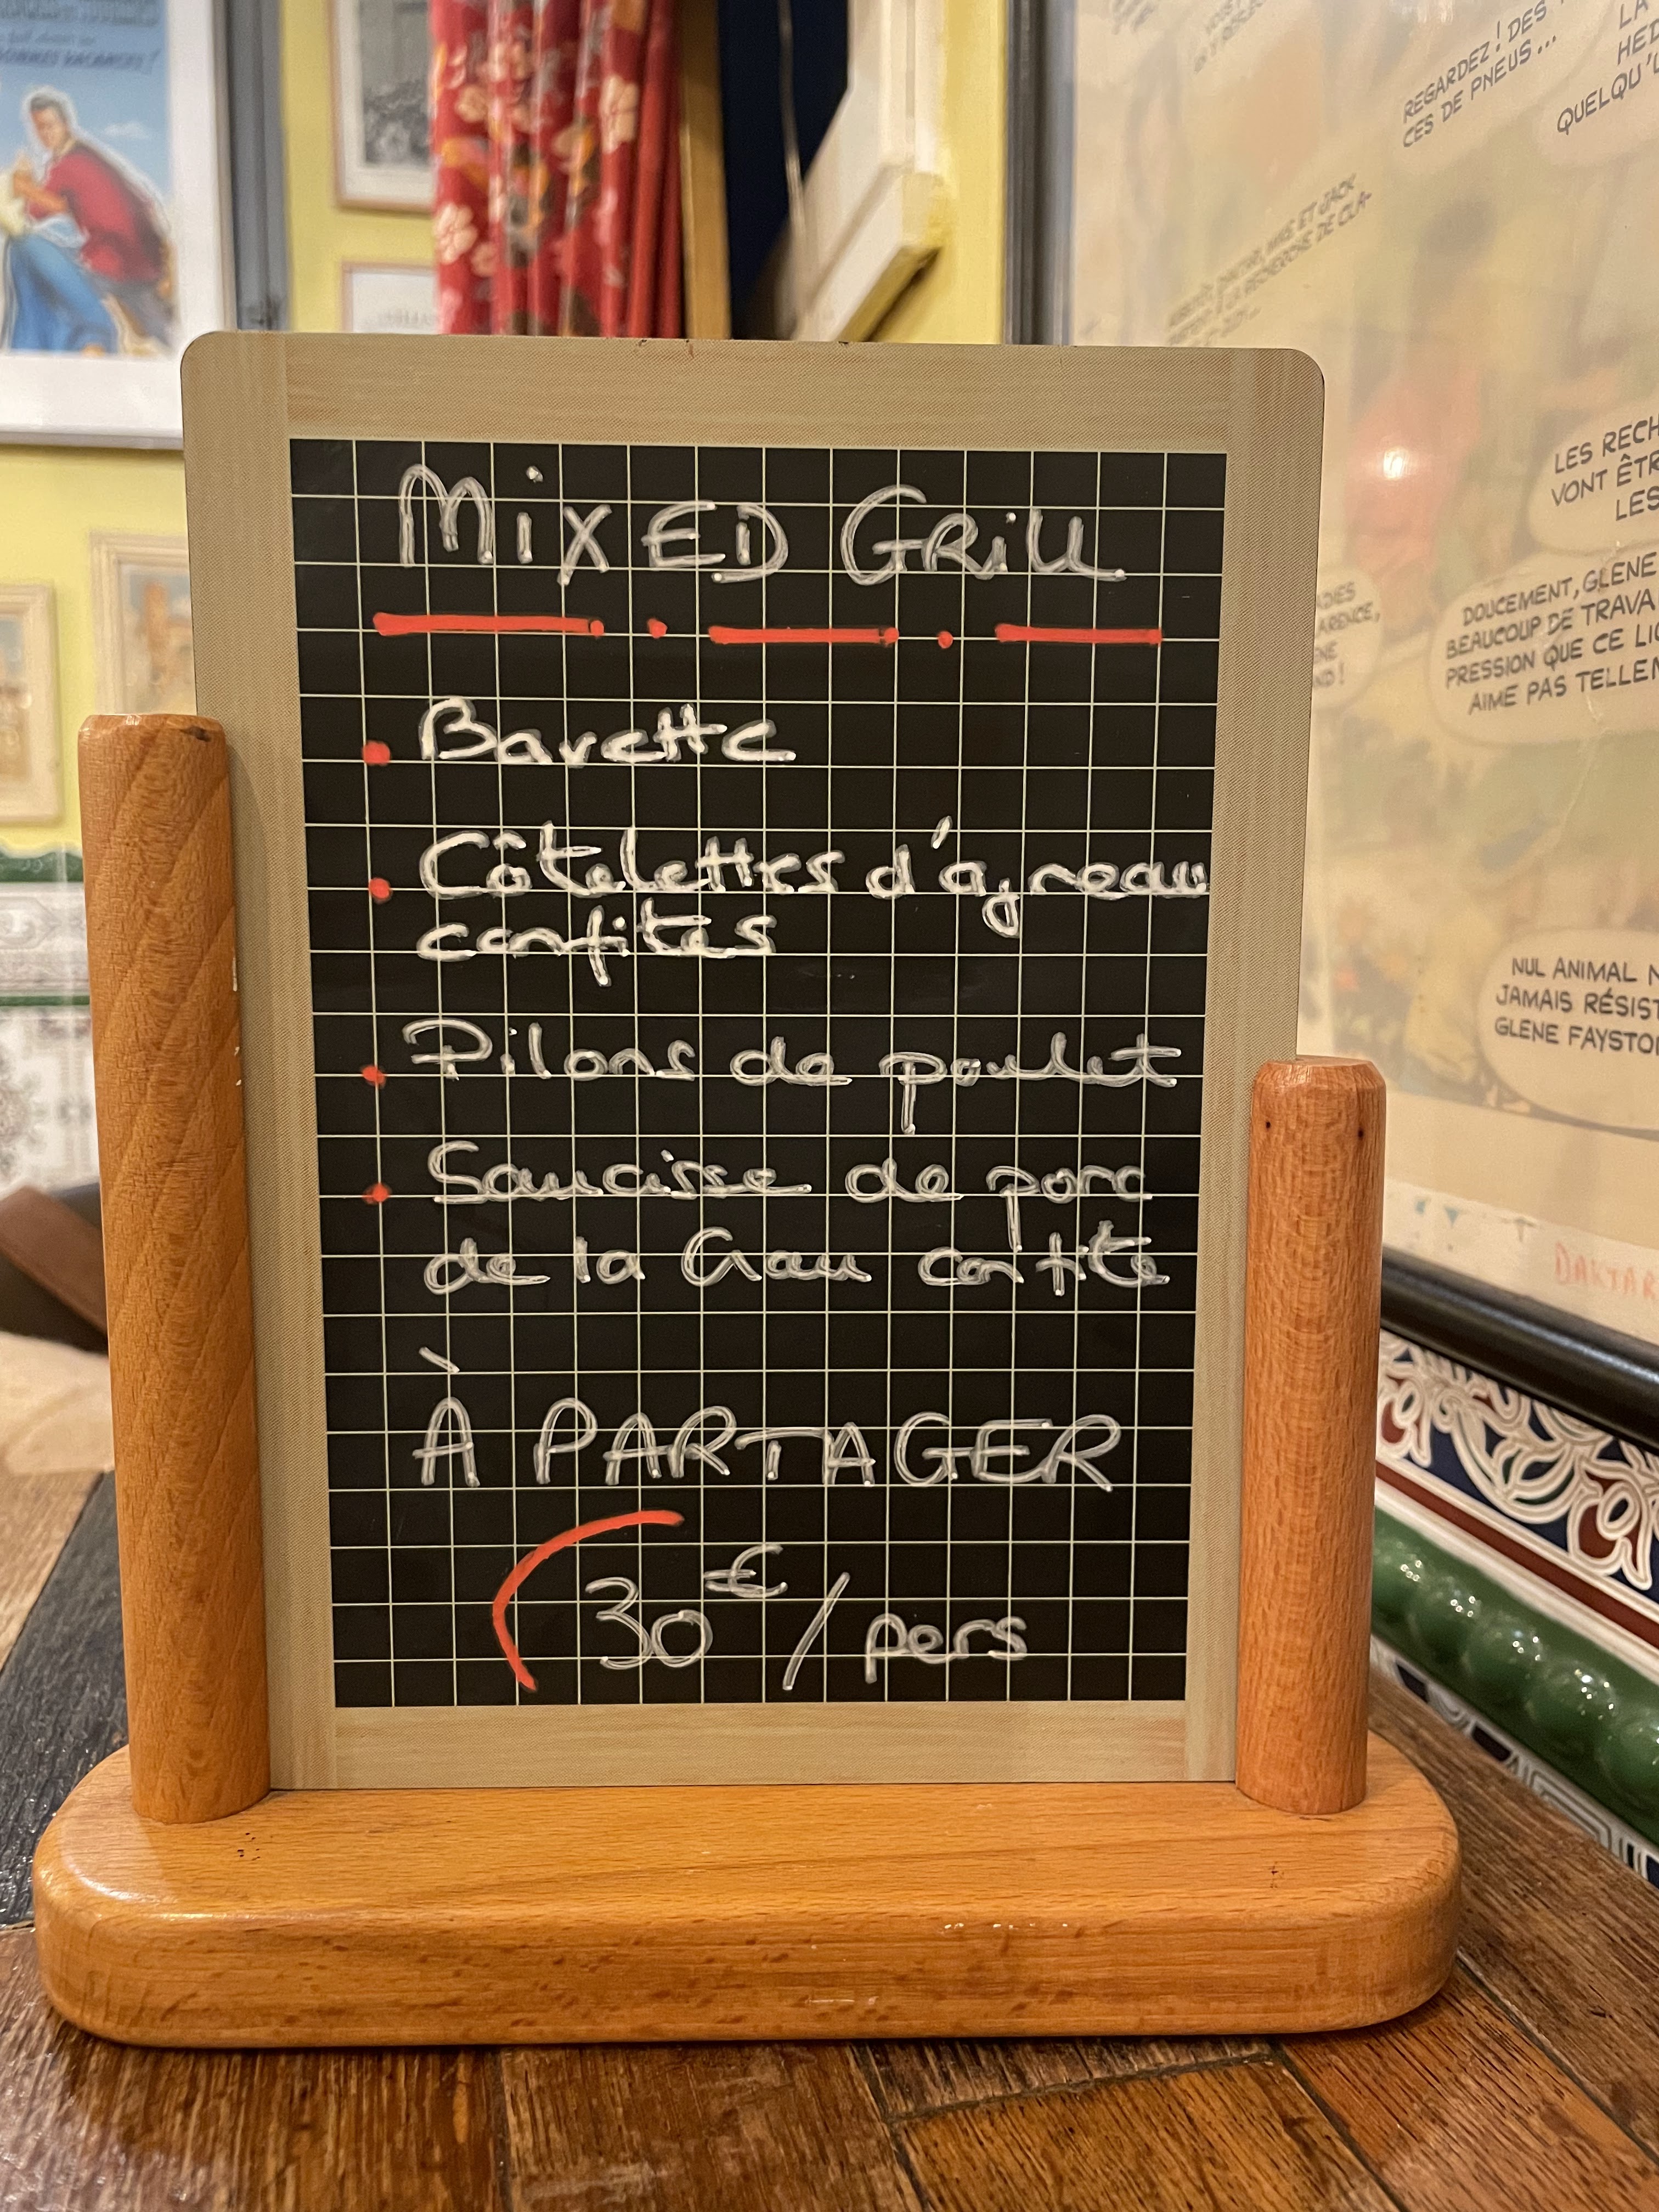 MiXED GRiLL
Bavette
Côtelettes d'agneau
confites
Pilons de poulet
Saucisse de porc
de la Crau confite
À PARTAGER
30€ / pers
BONNES VACANCES!
REGARDEZ! DES
CES DE PNEUS...
LA
HED
QUELQU'U
LES RECH
VONT ÊTR
LES
DOUCEMENT, GLENE
BEAUCOUP DE TRAVA
PRESSION QUE CE LIO
AIME PAS TELLEM
NUL ANIMAL N
JAMAIS RÉSIST
GLENE FAYSTO
DAKTAR